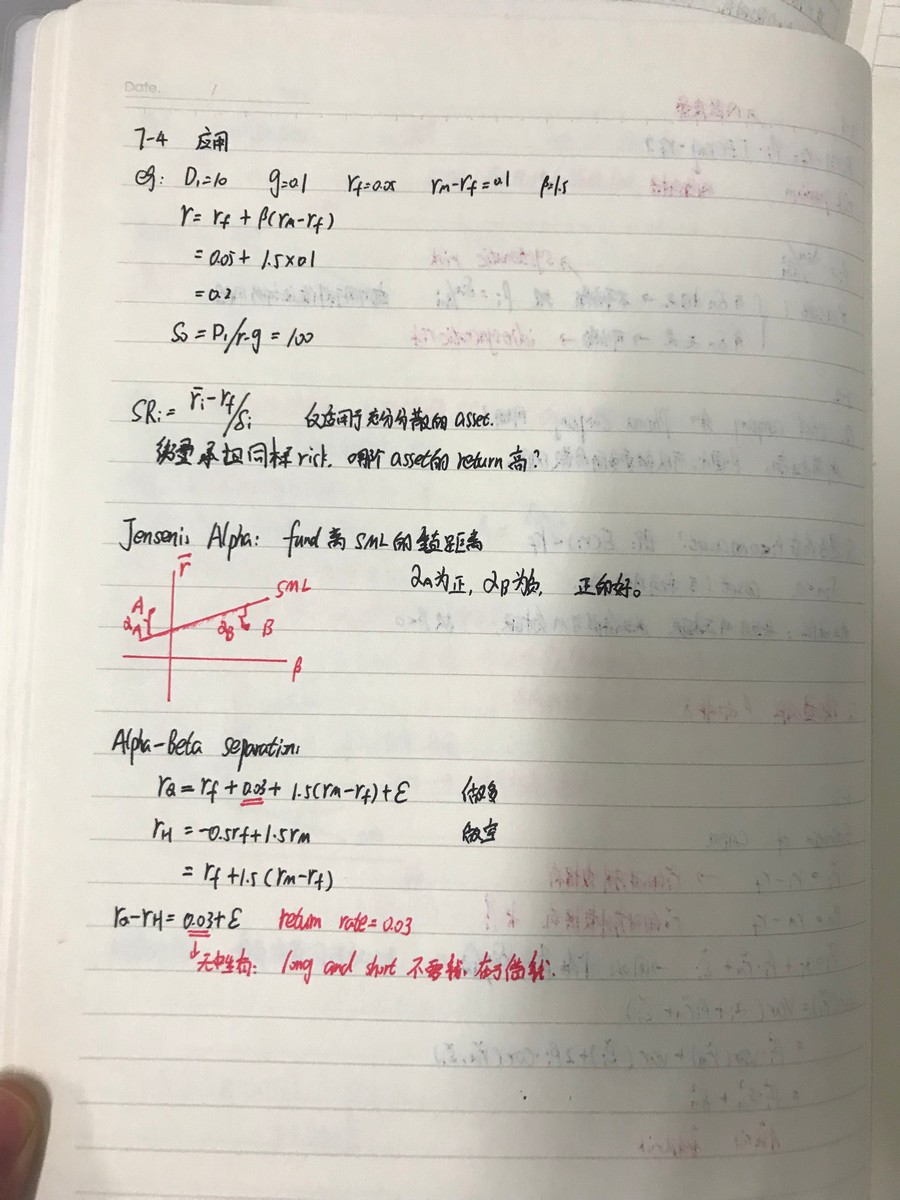 Date. /
7-4 应用
eg: D₁=10 g=0.1 rf=0.05 rm-rf=0.1 β=1.5
r= rf + β(rm-rf)
= 0.05+ 1.5×0.1
=0.2
S₀ = D₁/r-g = 100
SRi= r̄i-rf/δi 仅适用于充分分散的 asset.
衡量承担同样risk, 哪个asset的return高?
Jensen's Alpha: fund离SML的垂直距离
αA为正, αB为负, 正的好。
r̄
SML
A
αA
αB
B
β
Alpha-Beta separation:
rQ= rf + 0.03+ 1.5(rm-rf)+ε 做多
rH = -0.5rf+1.5rm 做空
= rf +1.5 (rm-rf)
rQ-rH= 0.03+ε return rate=0.03
↓无中生有: long and short 不要钱, 在于借钱.